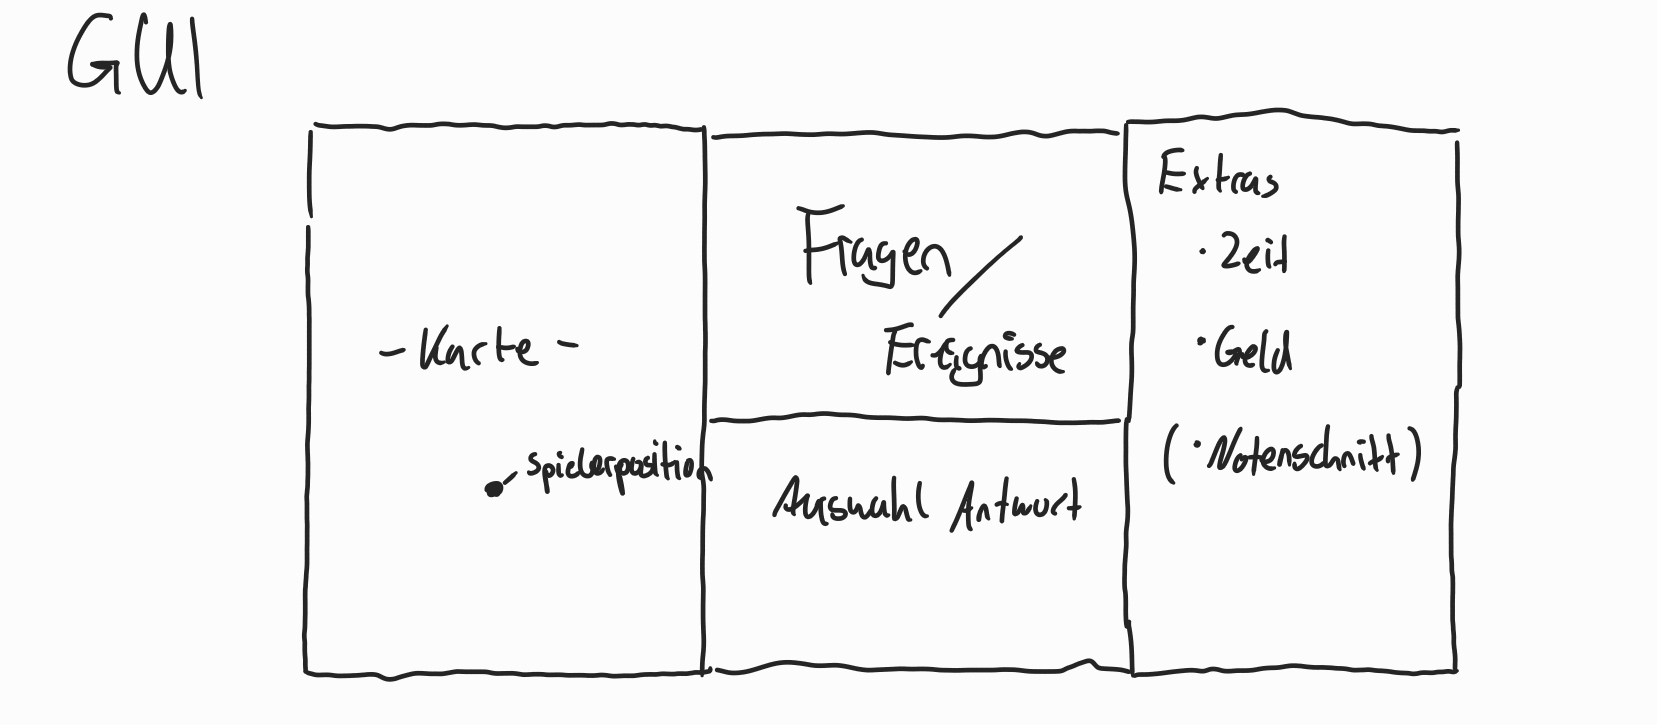 GUI
- Karte -
spielerposition
Fragen /
Ereignisse
Auswahl Antwort
Extras
· Zeit
· Geld
(· Notenschnitt)